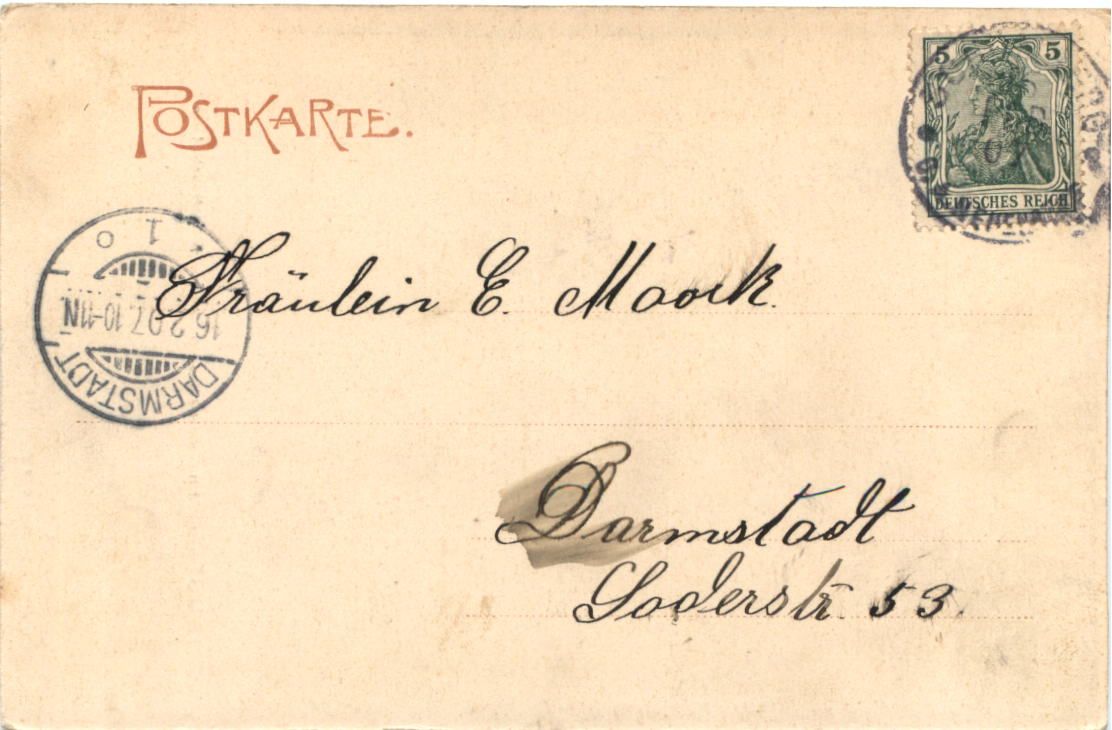 POSTKARTE.
5 5
DEUTSCHES REICH
1 0
16.2.07.10-11N.
DARMSTADT
Fräulein E.
Darmstadt
Soderstr 53.